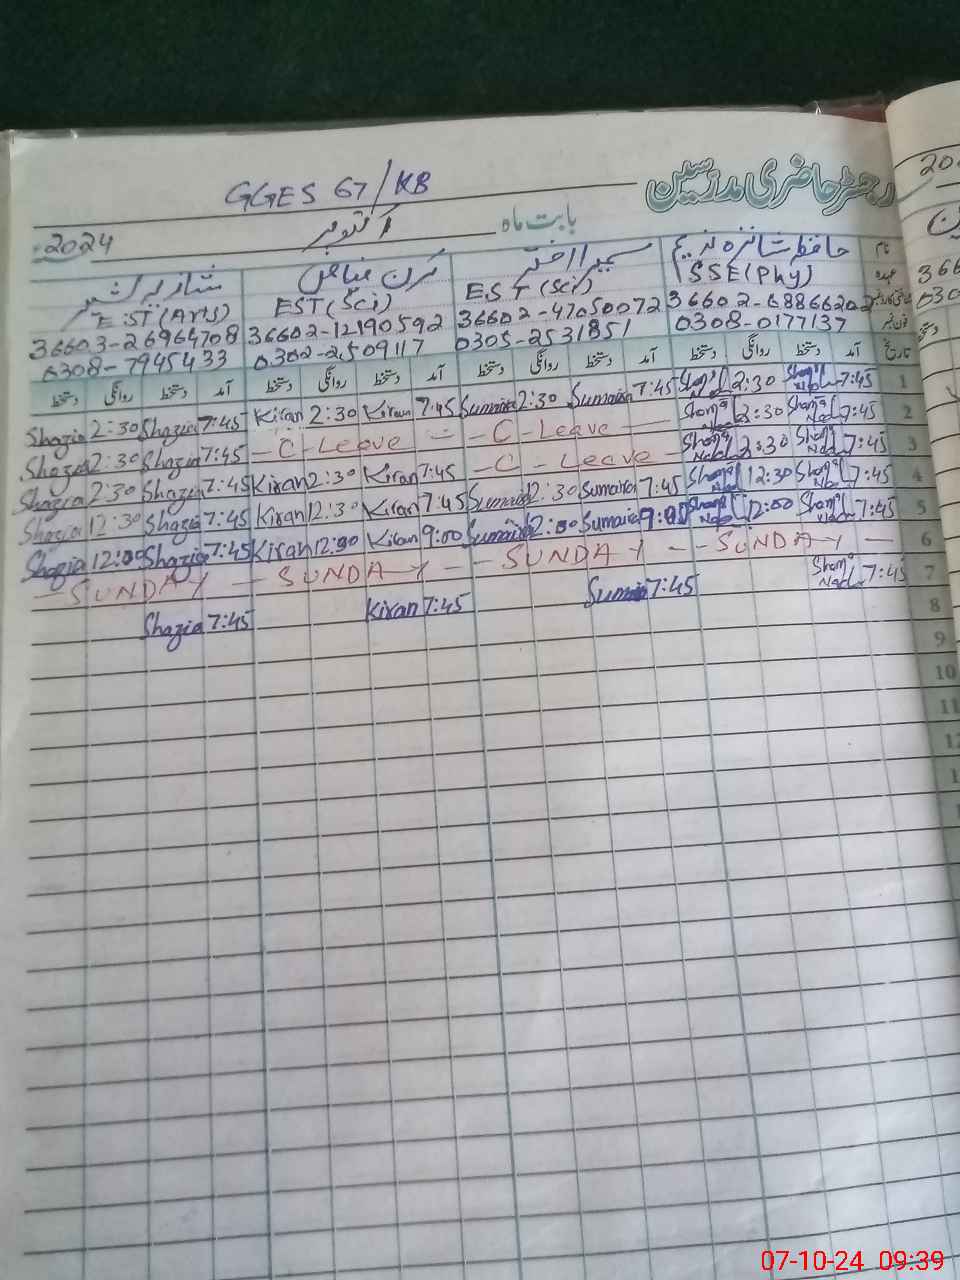 رجسٹر حاضری مدرسین
GGES 67/KB
بابت ماہ اکتوبر 2024
نام حافظہ شانزہ ندیم سمیرا اختر کرن فیاض شازیہ
عہدہ SSE(Phy) EST(Sci) EST(Sci) EST(Arts)
36602-6886620 36602-47050072 36602-12190592 36603-26964708
فون نمبر 0308-0177137 0305-2531851 0302-2509117 0308-7945433
تاریخ آمد دستخط روانگی دستخط آمد دستخط روانگی دستخط آمد دستخط روانگی دستخط آمد دستخط روانگی دستخط
1 7:45 2:30 7:45 Sumaira 2:30 Sumaira 7:45 Kiran 2:30 Kiran 7:45 Shazia 2:30 Shazia
2 7:45 2:30 - C - Leave - - C - Leave - 7:45 Shazia 2:30 Shazia
3 7:45 2:30 - C - Leave - 7:45 Kiran 2:30 Kiran 7:45 Shazia 2:30 Shazia
4 7:45 12:30 7:45 Sumaira 12:30 Sumaira 7:45 Kiran 12:30 Kiran 7:45 Shazia 12:30 Shazia
5 7:45 12:00 9:00 Sumaira 12:00 Sumaira 9:00 Kiran 12:00 Kiran 7:45 Shazia 12:00 Shazia
6 - SUNDAY - - SUNDAY - - SUNDAY - - SUNDAY -
7 7:45 7:45 Sumaira 7:45 Kiran 7:45 Shazia
8
9
10
11
12
07-10-24 09:39